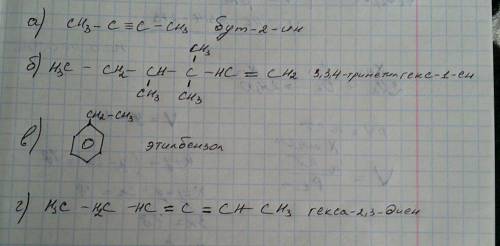 а) CH₃ – C ≡ C – CH₃ бут-2-ин
CH₃
б) H₃C – CH₂ – CH – C – HC = CH₂ 3,3,4-триметилгекс-1-ен
CH₃ CH₃
CH₂–CH₃
в) этилбензол
г) H₃C – H₂C – HC = C = CH – CH₃ гекса-2,3-диен